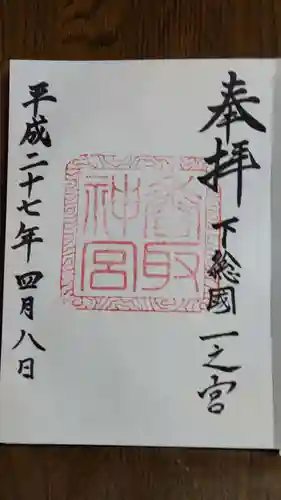 奉拝
下総國一之宮
香取神宮
平成二十七年四月八日